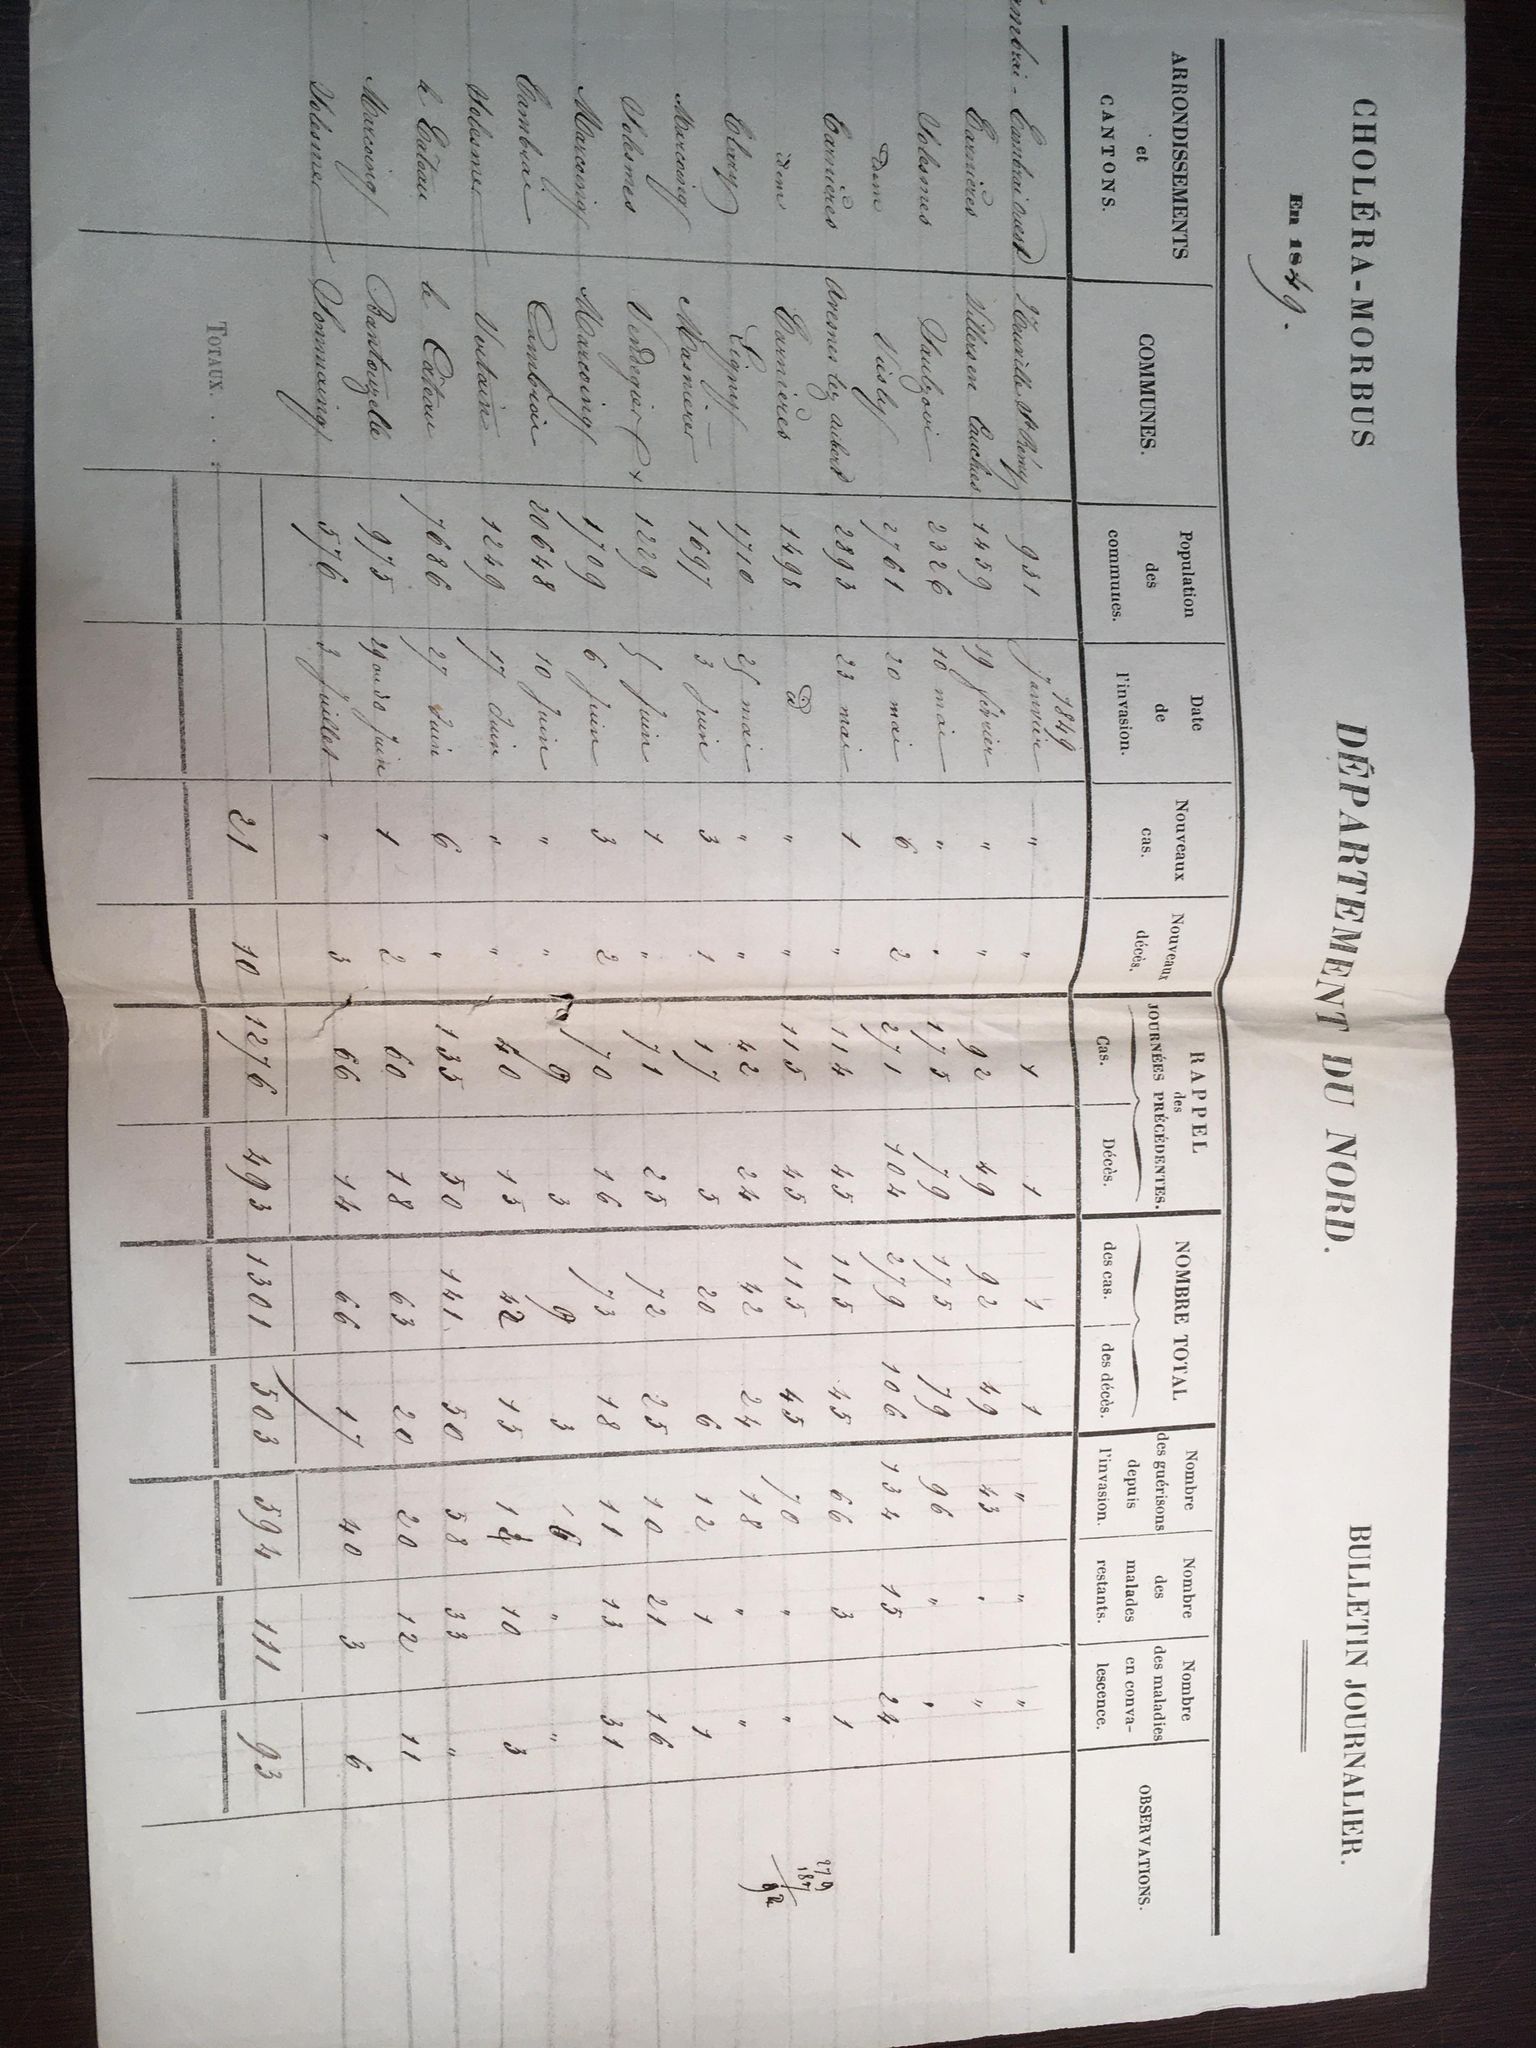 CHOLÉRA-MORBUS DÉPARTEMENT DU NORD. BULLETIN JOURNALIER.
En 1849.
ARRONDISSEMENTS et CANTONS. COMMUNES. Population des communes. Date de l'invasion. Nouveaux cas. Nouveaux décès. RAPPEL des JOURNÉES PRÉCÉDENTES. Cas. Décès. NOMBRE TOTAL des cas. des décès. Nombre des guérisons depuis l'invasion. Nombre des malades restants. Nombre des maladies en convalescence. OBSERVATIONS.
1849
Cambrai ouest St Rémy 931 Janvier " " 1 1 1 1 " " "
Carnières Villers en Cauchies 1459 19 février " " 92 49 92 49 43 " "
Solesmes Saulzoir 2326 10 mai " " 175 79 175 79 96 " "
Idem Viesly 2761 20 mai 6 2 271 104 279 106 134 15 24
Carnières Avesnes lez aubert 2893 23 mai 1 " 114 45 115 45 66 3 1
idem Carnières 1498 d " " 115 45 115 45 70 " "
Clary Ligny 1710 25 mai " " 42 24 42 24 18 " "
Marcoing Masnières 1697 3 Juin 3 1 17 5 20 6 12 1 1
Solesmes Vendegies 1229 5 Juin 1 " 71 25 72 25 10 21 16
Marcoing Marcoing 1709 6 Juin 3 2 70 16 73 18 11 13 31
Cambrai Cambrai 20648 10 Juin " " 9 3 9 3 6 " "
Solesmes 1249 17 Juin " " 40 15 42 15 14 10 3
le Cateau le Cateau 7686 27 Juin 6 " 135 50 141 50 58 33 "
Marcoing Bantouzelle 975 29 ou 30 Juin 1 2 60 18 63 20 20 12 11
Solesmes Sommaing 576 3 Juillet " 3 66 14 66 17 40 3 6
TOTAUX. . . . 21 10 1276 493 1301 503 594 111 93
279
187
92